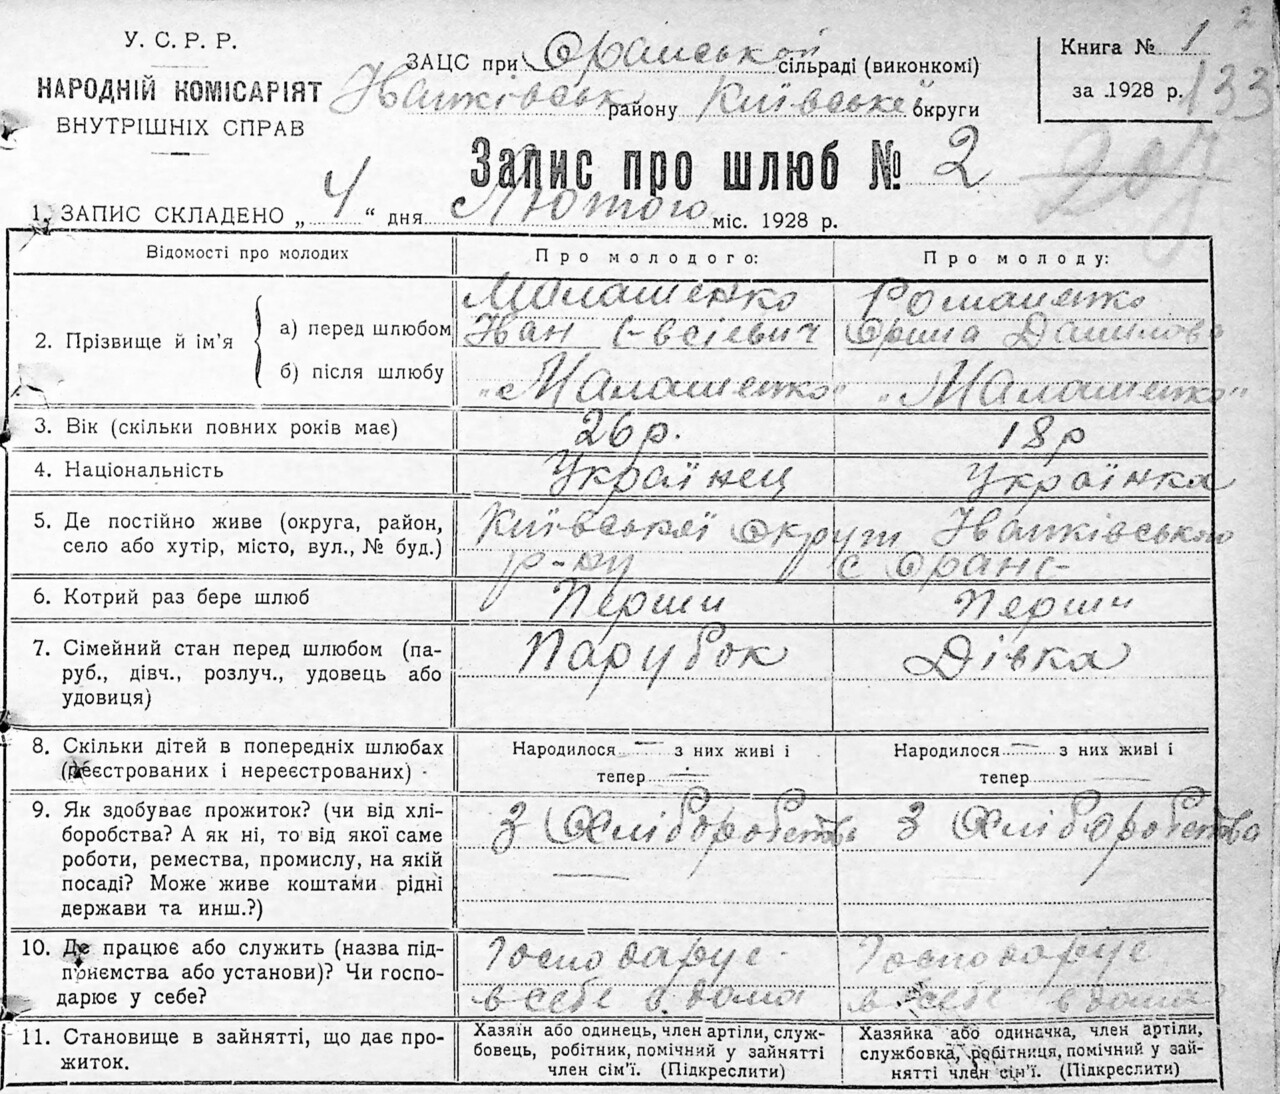 У. С. Р. Р.
НАРОДНІЙ КОМІСАРІЯТ
ВНУТРІШНІХ СПРАВ
ЗАЦС при Оранській сільраді (виконкомі)
Іванківськ району Київської округи
Книга № 1
за 1928 р. 133
2
207
Запис про шлюб № 2
1. ЗАПИС СКЛАДЕНО „ 4 “ дня Лютого міс. 1928 р.
Відомості про молодих
Про молодого:
Про молоду:
2. Прізвище й ім’я
а) перед шлюбом
Малашенко
Іван Євсієвич
Романенко
Орина Данилова
б) після шлюбу
„Малашенко“
„Малашенко“
3. Вік (скільки повних років має)
26 р.
18 р
4. Національність
Українец
Українка
5. Де постійно живе (округа, район,
село або хутір, місто, вул., № буд.)
Київської Округи Іванківського
р-ну с Оране-
6. Котрий раз бере шлюб
Перши
Перши
7. Сімейний стан перед шлюбом (па-
руб., дівч., розлуч., удовець або
удовиця)
Парубок
Дівка
8. Скільки дітей в попередніх шлюбах
(реєстрованих і нереєстрованих)
Народилося — з них живі і
тепер —
Народилося — з них живі і
тепер —
9. Як здобуває прожиток? (чи від хлі-
боробства? А як ні, то від якої саме
роботи, ремества, промислу, на якій
посаді? Може живе коштами рідні
держави та инш.?)
З Хліборобства
—
З Хліборобства
—
10. Де працює або служить (назва під-
приємства або установи)? Чи госпо-
дарює у себе?
Господарує
в себе вдома
Господарує
в себе вдома
11. Становище в зайнятті, що дає про-
житок.
Хазяїн або одинець, член артіли, служ-
бовець, робітник, помічний у зайнятті
член сім’ї. (Підкреслити)
Хазяйка або одиначка, член артіли,
службовка, робітниця, помічний у зай-
нятті член сім’ї. (Підкреслити)